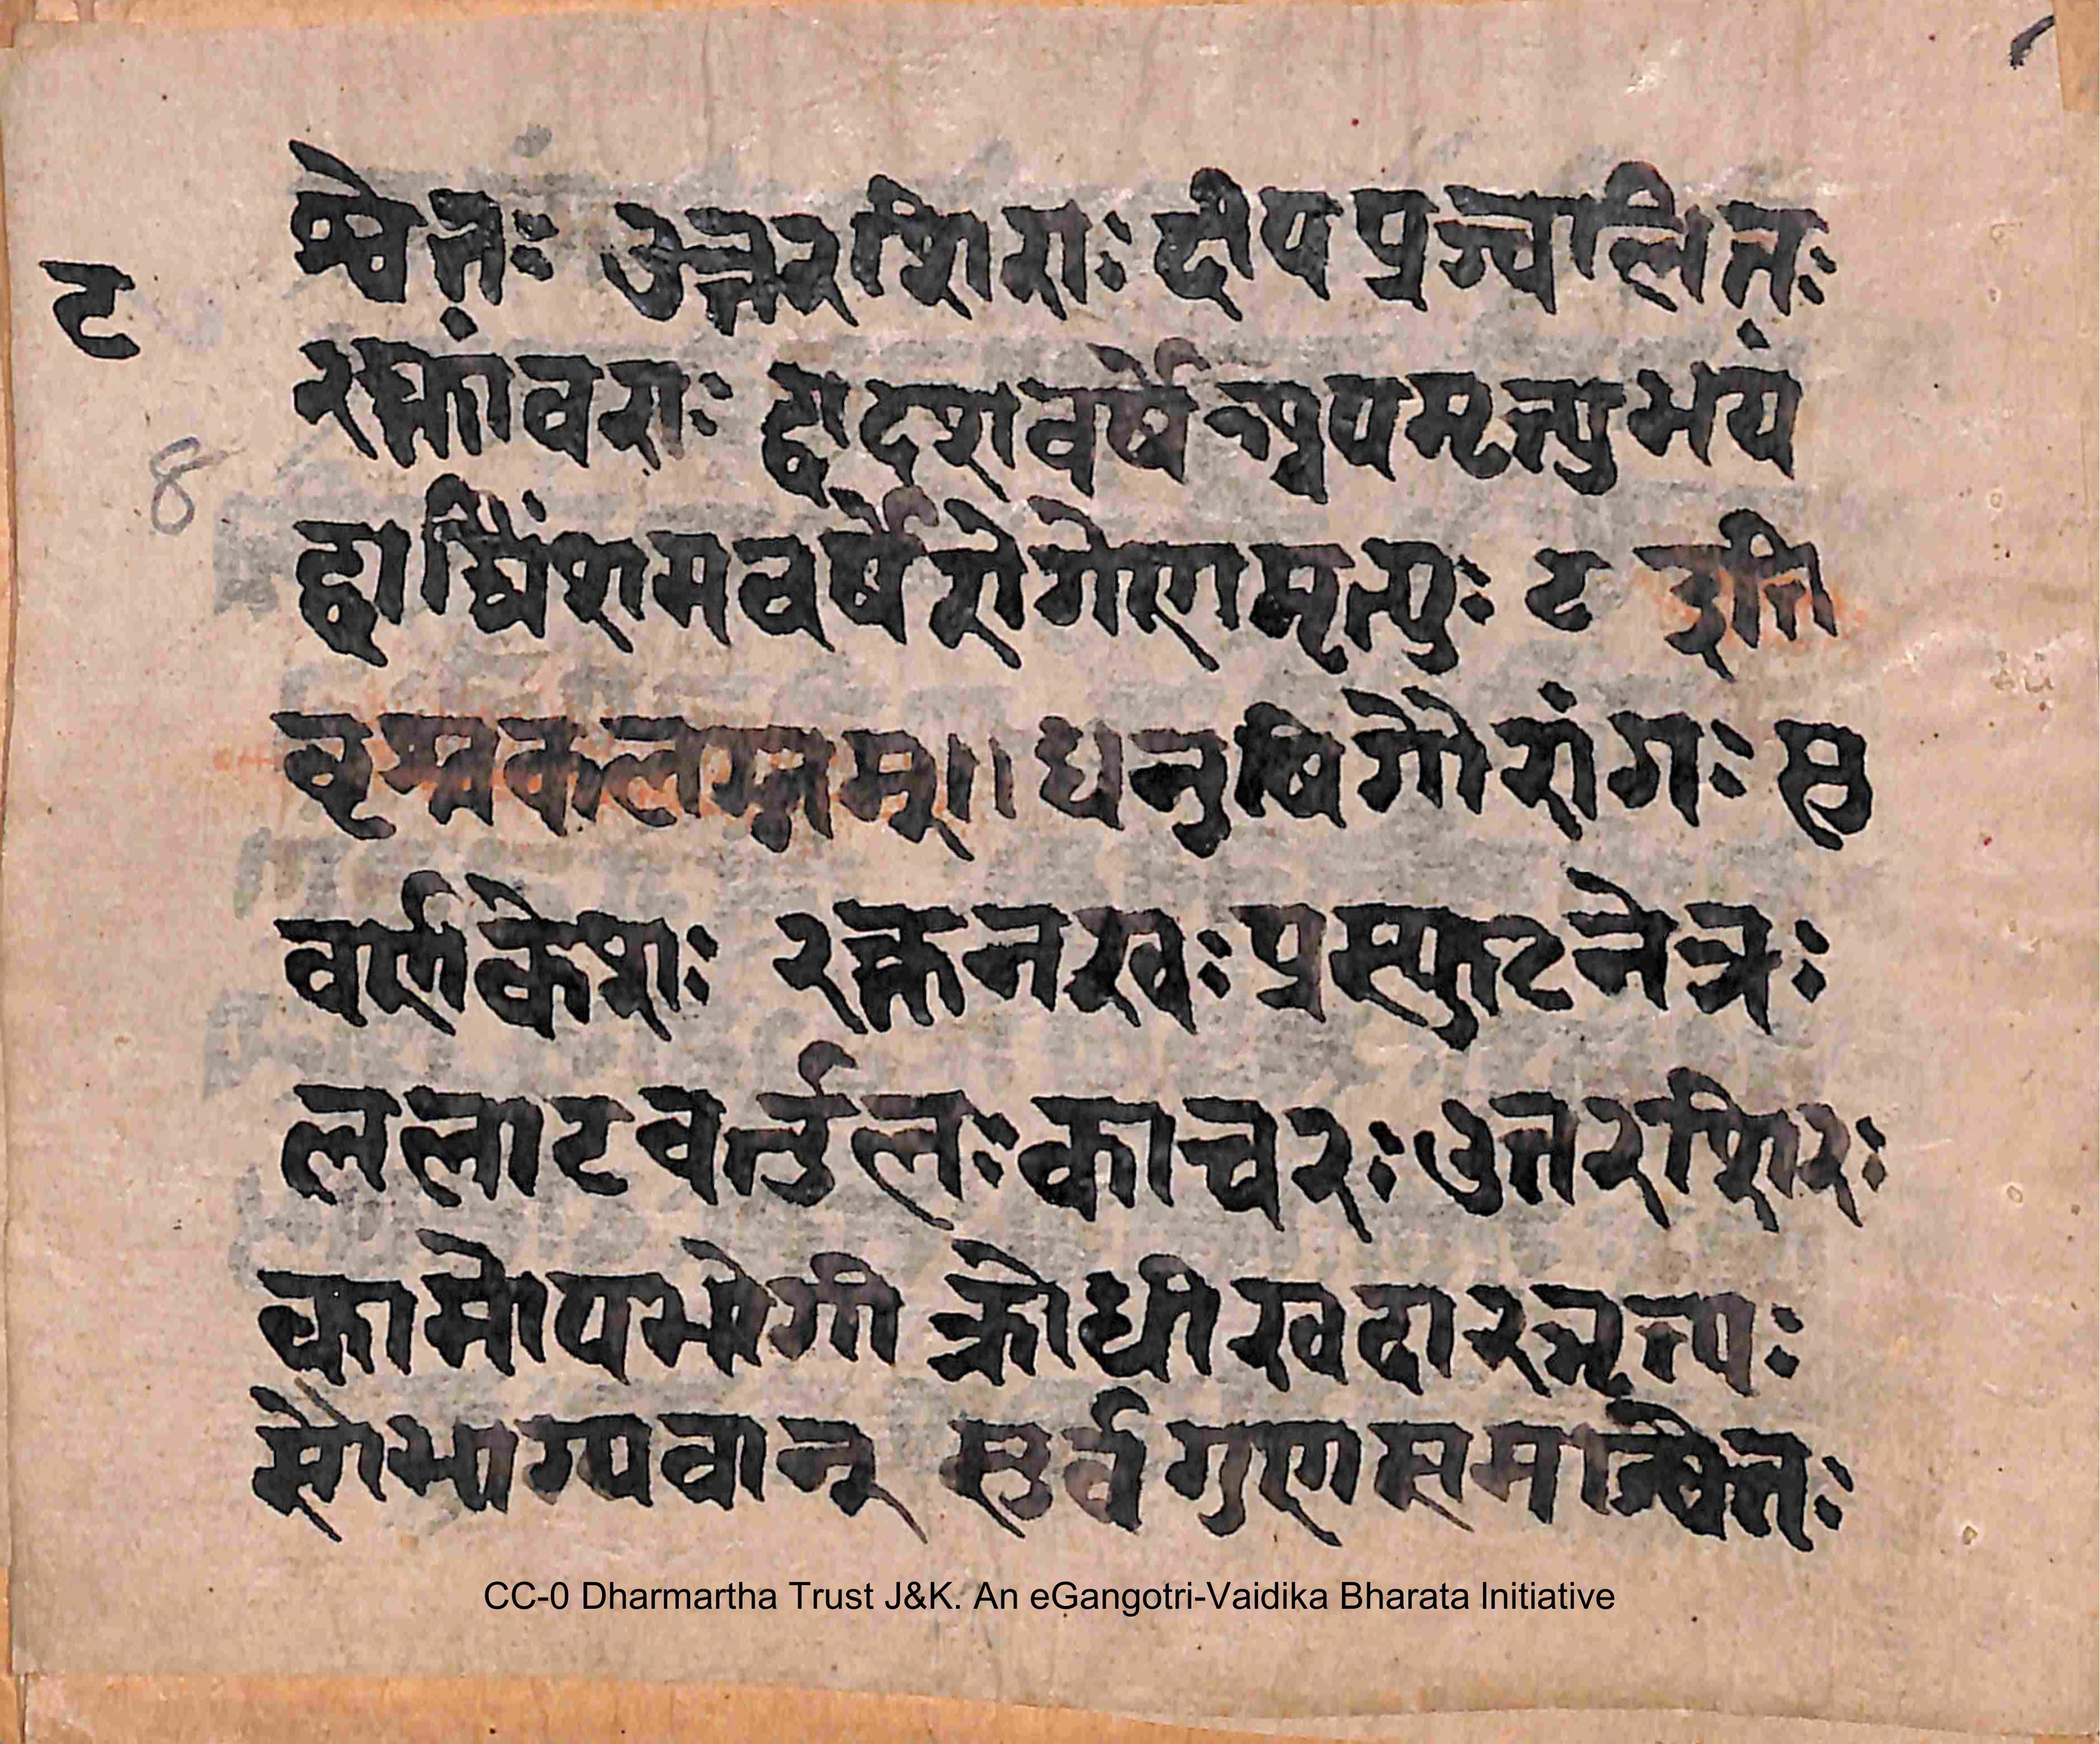 श्वेतः उत्तरशिराः दीपप्रज्वलितः
ट
रक्तांवराः द्वादशवर्षे नृपमृत्युभयं
8
द्वात्रिंशमवर्षे रोगेणमृत्युः ट इति
वृश्चकलग्नम्।। धनुषिगौरांगः सु
वर्णकेशः रक्तनखः प्रस्फुटनेत्रः
ललाटवर्तुलः काचरः उत्तरशिरः
कामोपभोगी क्रोधी
सौभाग्यवान् सर्वगुणसमान्वितः
CC-0 Dharmartha Trust J&K. An eGangotri-Vaidika Bharata Initiative